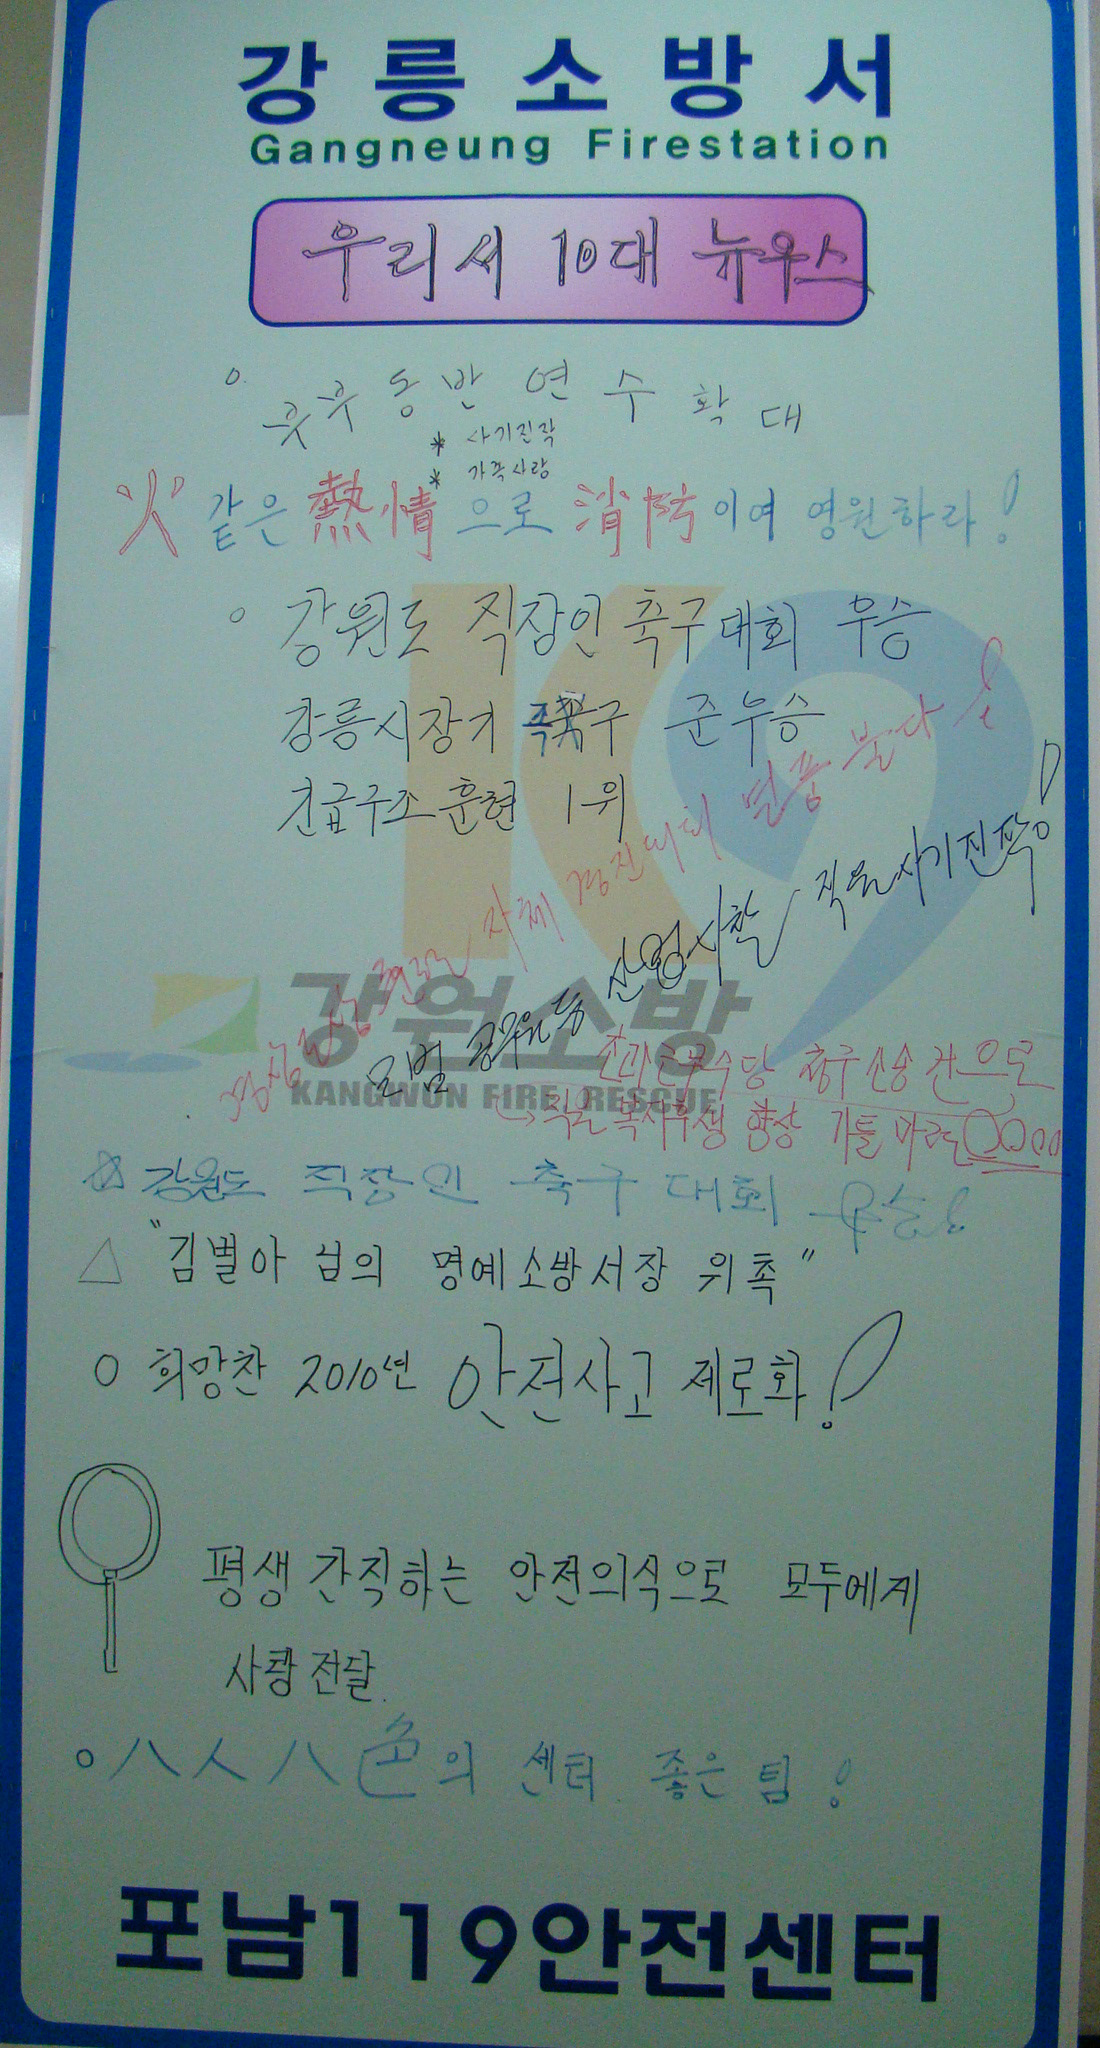 강릉소방서
Gangneung Firestation
우리서 10대 뉴우스
부부동반 연수 확대
* 사기진작
* 가족사랑
火같은 熱情으로 消防이여 영원하라!
강원도 직장인 축구대회 우승
강릉시장기 족구 준우승
긴급구조훈련 1위
자체 열풍 분다
모범공무원등 산업시찰 직원사기진작!
초과근무수당 청구소송건으로
→직원복지후생 향상 기틀마련
강원소방
KANGWON FIRE RESCUE
☆ 강원도 직장인 축구대회 우승!
△ "김별아 님의 명예소방서장 위촉"
○ 희망찬 2010년 안전사고 제로화!
평생 간직하는 안전의식으로 모두에게
사랑전달.
○ 八人八色의 센터 좋은 팀!
포남119안전센터